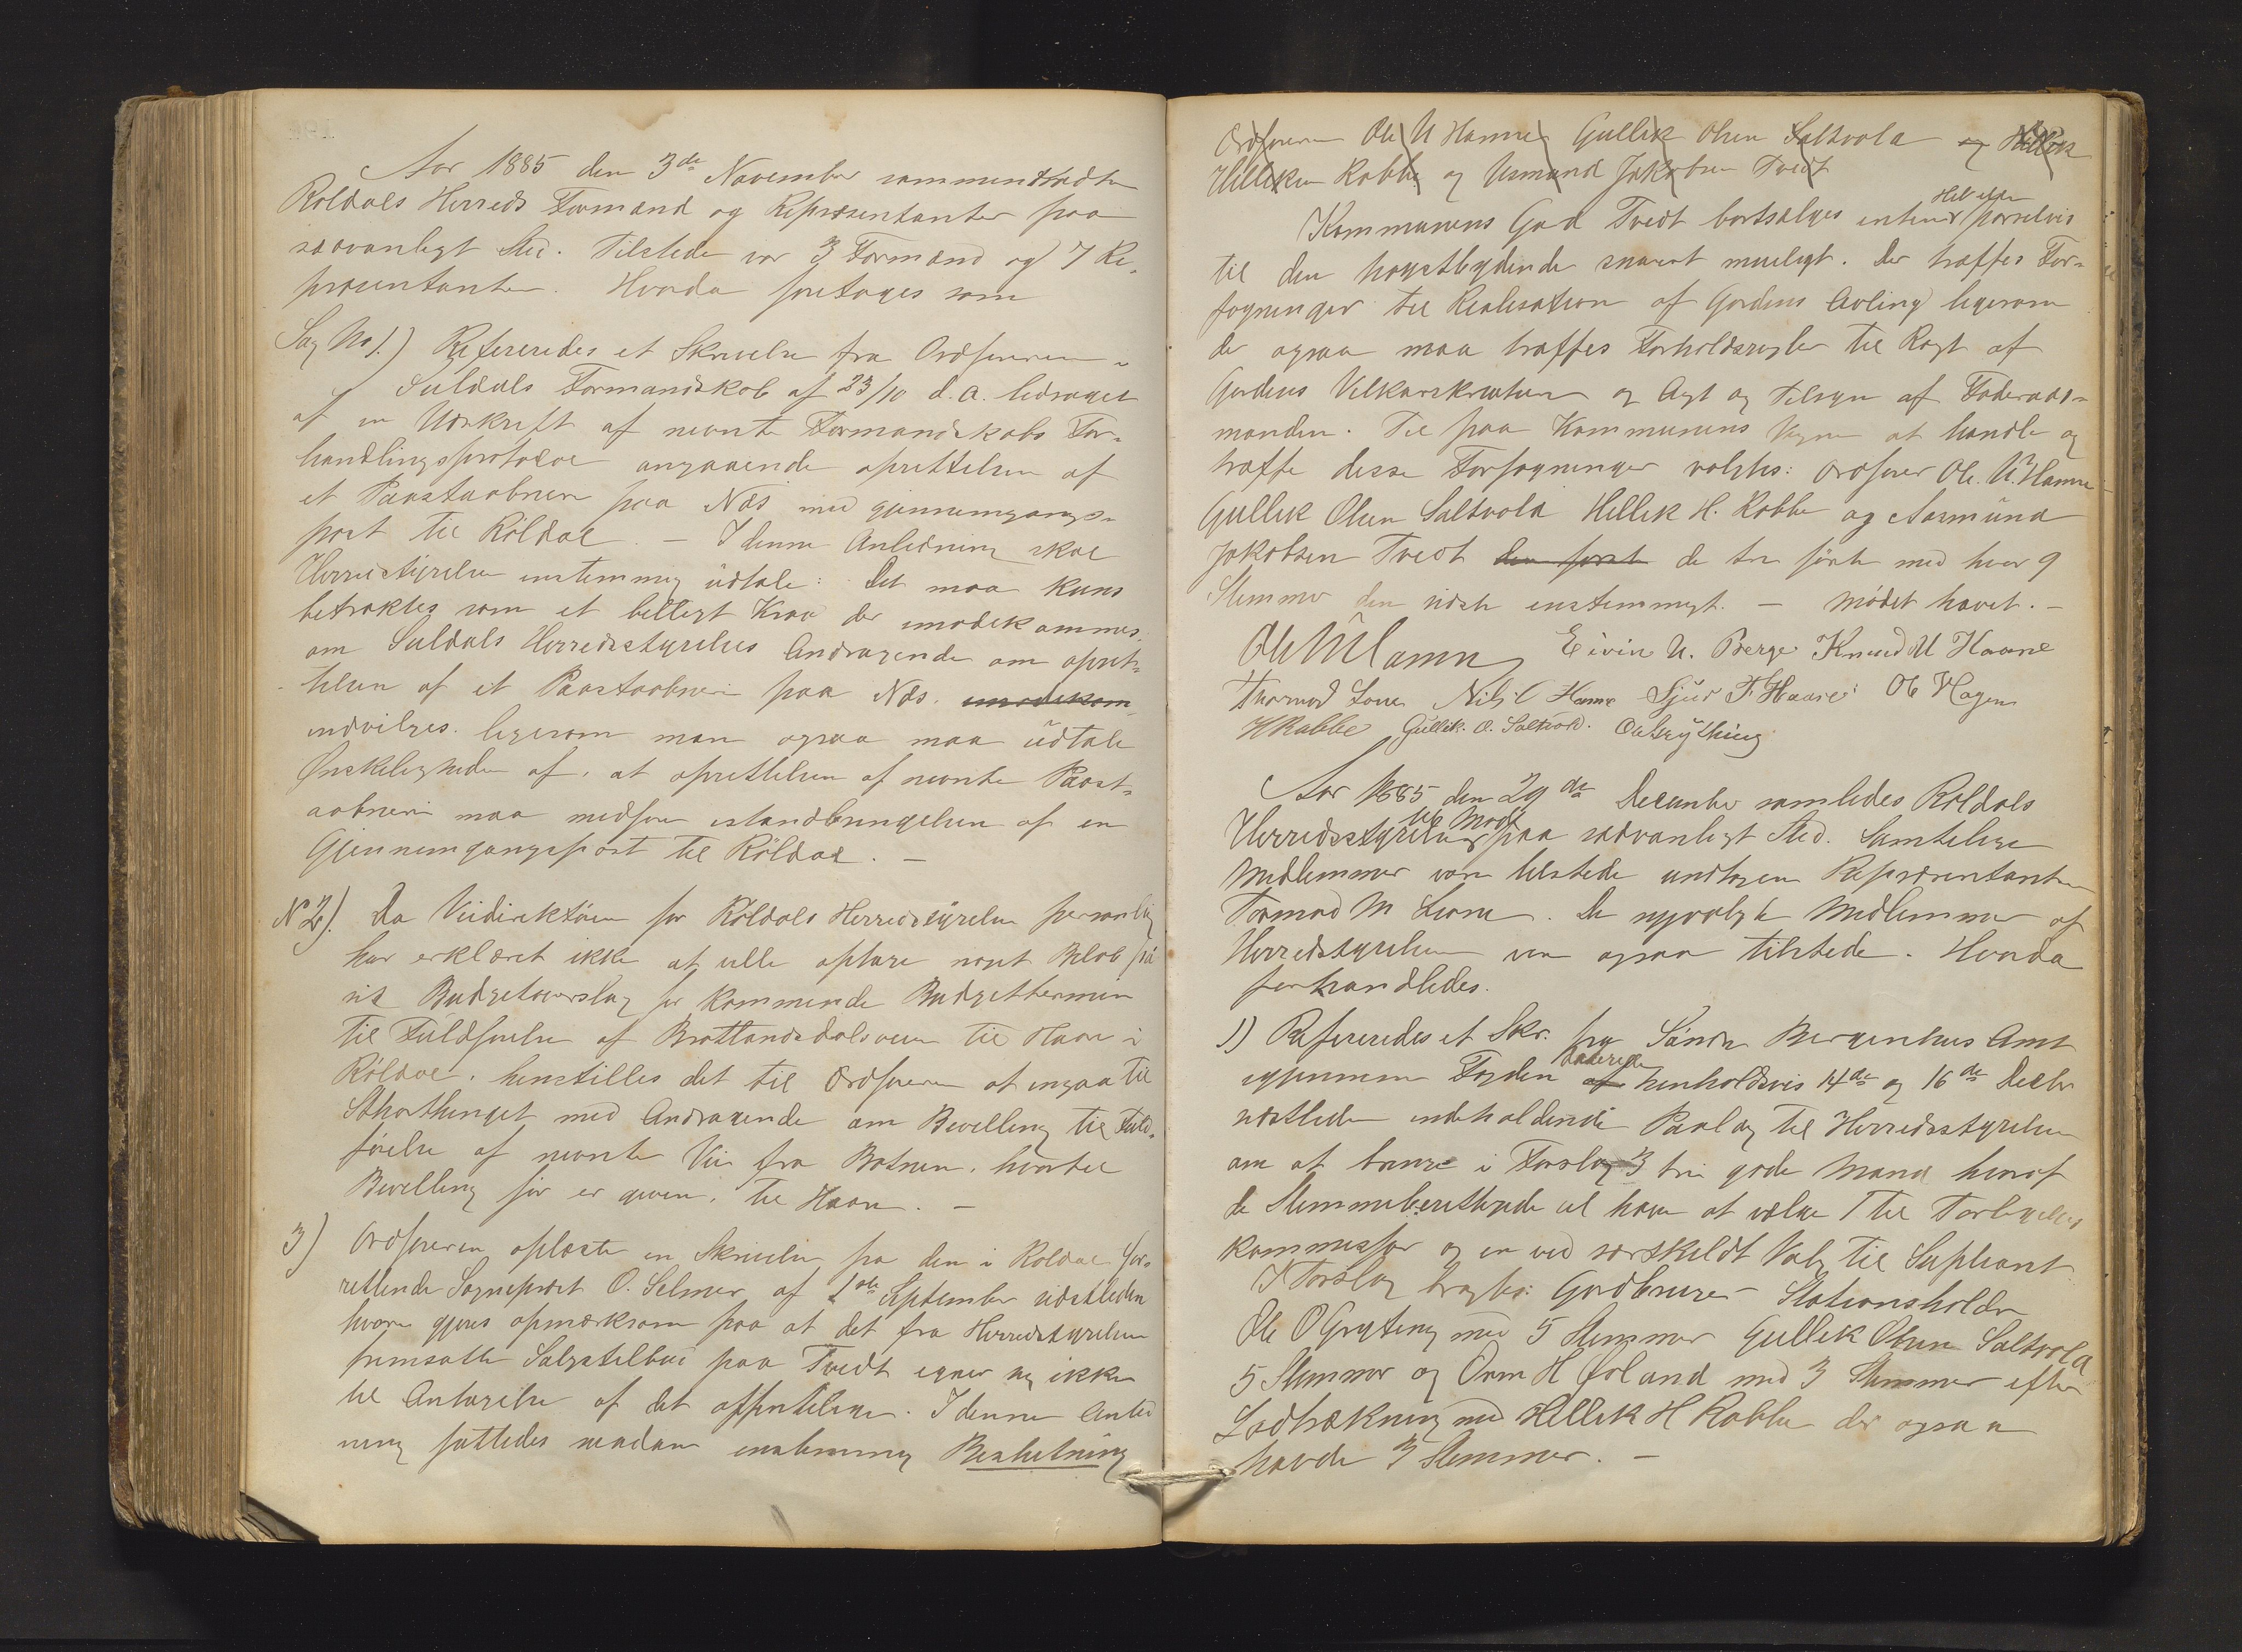 Aar 1885 den 3de November sammentraadte
Roldals Herreds Formænd og Repræsentanter paa
sædvanligt Sted. Tilstede var 3 Formænd og 7 Re-
præsentanter. Hvorda foretoges som
Sag No 1.) Refereredes et Skrivelse fra Ordføreren i
Suldals Formandskab af 23/10 d.a. ledsaget
af en Udskrift af nævnte Formandskabs For-
handlingsprotocol angaaende oprettelsen af
et Paastaabneri paa Næs med gjennemgangs-
post til Röldal. — I denne Anledning skal
Herredstyrelsen enstemmig udtale: Det maa kuns
betraktes som et billigt Krav der imødekommes
om Suldals Herredsstyrelses Andragende om opret-
telsen af et Paastaabneri paa Næs. imødekom
indvilges. ligesom man ogsaa maa udtale
Ønskeligheden af, at oprettelsen af nævnte Paast-
aabneri maa medføre istandbringelsen af en
Gjennemgangspost til Röldal. —
N 2). Da Veidirektören for Röldals Herredsstyrelse personlig
har erklæret ikke at ville optage noget Beløb på
sit Budgetoverslag for kommende Budgettermin
til Fuldførelse af Brattlandsdalsveien til Haare i
Röldal, henstilles det til Ordføreren at ingaa til
Sthorthinget med Andragende om Bevilling til Fuld-
førelse af nævnte Vei fra Botnen, hvortil
Bevilling før er given, til Haare. —
3) Ordføreren oplæste en Skrivelse fra den i Roldal for-
rettende Sogneprest O. Selmer af 1ste September sidstleden
hvori gjøres opmærksom paa at det fra Herredstyrelsen
fremsatte Salgstilbud paa Tvedt egner sig ikke
til Antagelse af det offentlige. I denne Anled
ning fattedes saadan enstemmig Beslutning
Ordføreren Ole N Hamre Gullik Olsen Saltvola og Hellik
Helliksen Rabbe og Asmund Jakobsen Tvedt
Hel eller
Kommunens Gard Tvedt bortsælges enten parselvis
til den høystbydende snarest mueligt. Der træffes For-
føgninger til Realisation af Gardens Avling ligesom
der ogsaa maa træffes Forholdsregler til Røgt af
Gardens Vilkarskreature og Agt og Tilsyn af Føderads-
manden. Til paa Kommunens Vegne at handle og
træffe disse Forføgninger valgtes: Ordfører Ole. N. Hamre
Gullik Olsen Saltvola Hellik H. Rabbe og Aasmund
Jakobsen Tvedt den første de tre förste med hver 9
Stemmer den sidste enstemmigt. — Mödet hævet. —
Ole N Hamre Eivin N. Berge Knud N Haare
Thormod Lone Nils Hamre Sjur T. Haare Ole Hagen
HRabbe Gullik. O. Saltvold. OGryting
Aar 1885 den 29de December samledes Röldals
til Möde
Herredsstyrelse paa sædvanligt Sted. Samtlige
Medlemmer vare tilstede undtagen Repræsentanten
Tormod M Lone. De nyvalgte Medlemmer af
Herredsstyrelsen var ogsaa tilstede. Hvorda
forhandledes.
1) Refereredes et Skr. fra Söndre Bergenhus Amt
daterede
igjennem Fogden af henholdsvis 14de og 16de Decbr
sidstleden indeholdende Paalæg til Herredsstyrelsen
om at bringe i Forslag 3 tre gode Mænd hvoraf
de Stemmeberettigede vil have at vælge 1 til Forligelses
kommissær og en ved særskildt Valg til Supleant
I Forslag bragtes: Gardbruger Stationsholder
Ole O Gryting med 5 Stemmer Gullik Olsen Saltvola
5 Stemmer og Orm H Øvland med 3 Stemmer efter
Lodtrækning med Hellik H Rabbe der ogsaa
havde 3 Stemmer. —